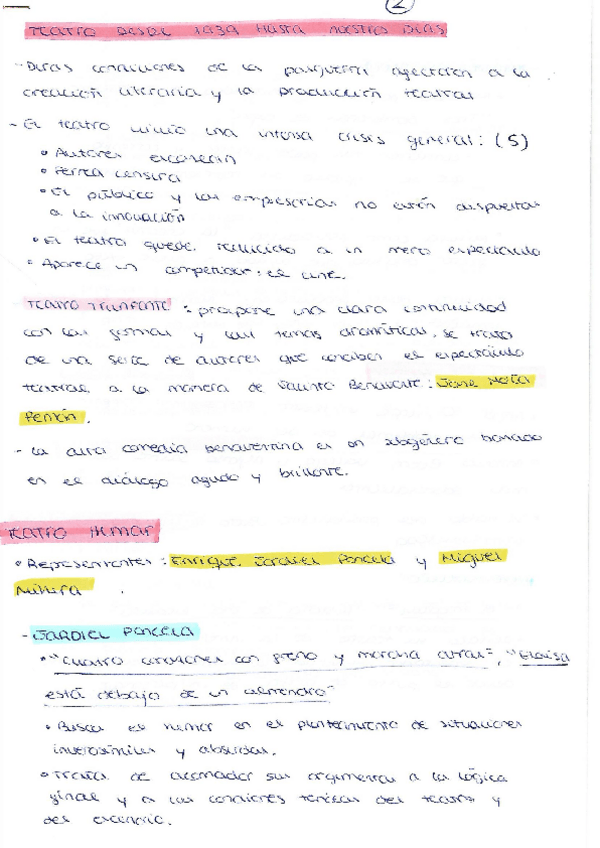 2
TEATRO DESDE 1939 HASTA NUESTROS DÍAS
- Duras condiciones de la posguerra afectaron a la
creación literaria y la producción teatral
- El teatro una intensa crisis general: (5)
• Autores
• Férrea censura
• El público y los empresarios no están dispuestos
a la innovación
• El teatro quede reducido a un mero espectáculo
• Aparece un competidor: el cine.
TEATRO TRIUNFANTE: propone una clara continuidad
con las formas y los temas dramáticos, se trata
de una serie de autores que conciben el espectáculo
teatral a la manera de Benavente: José María
Pemán.
- La alta comedia benaventina es un subgénero basado
en el diálogo agudo y brillante.
TEATRO HUMOR
• Representantes: Enrique Jardiel Poncela y Miguel
Mihura.
- JARDIEL PONCELA
• "Cuatro corazones con freno y marcha atrás", "Eloísa
está debajo de un almendro"
• Busca el humor en el planteamiento de situaciones
inverosímiles y absurdas.
• Trata de acomodar sus argumentos a la lógica
final y a las técnicas del teatro y
del escenario.